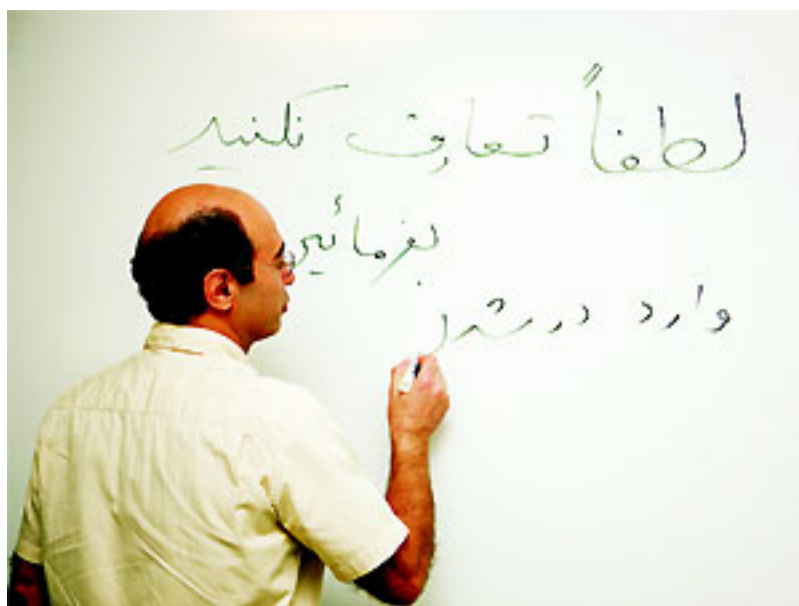 لطفاً تعارف نکنید
بفرمائید
وارد در شد